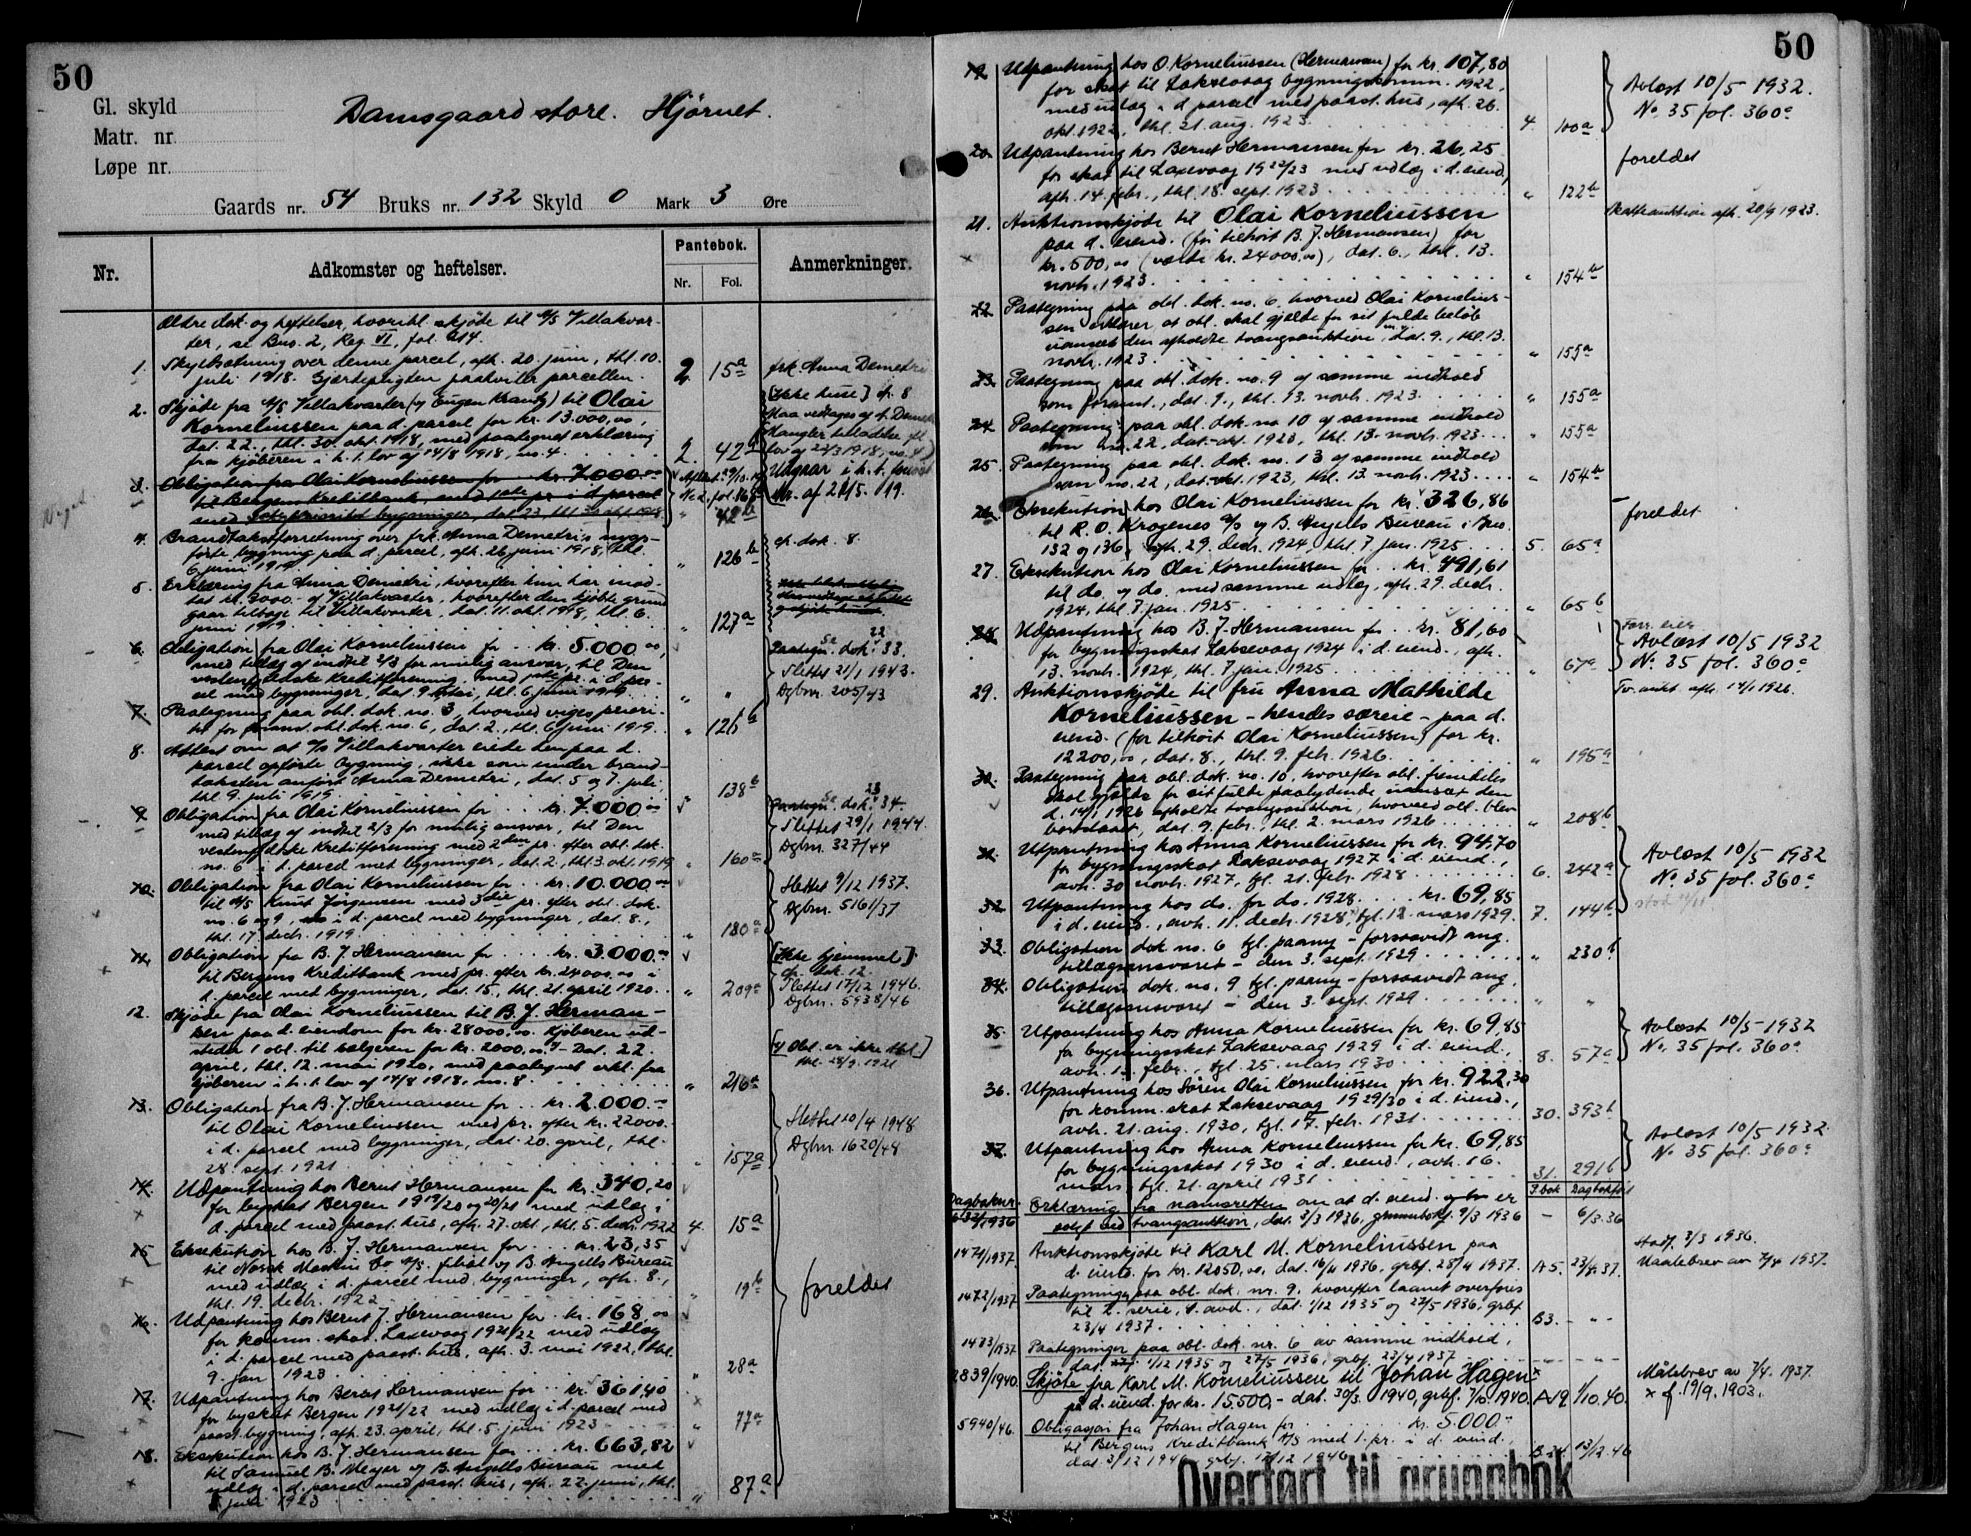 50
Gl. skyld
Matr. nr.
Løpe nr.
Damsgaard store. Hjørnet.
Gaards nr. 54 Bruks nr. 132 Skyld 0 Mark 3 Øre
Nr.
Adkomster og heftelser.
Pantebok.
Nr. Fol.
Anmerkninger.
Ældre dok. og heftelser, hvoribl. skjøde til A/S Villakvar-
ter, se Brus. 2, Reg. VI, fol. 214.
1. Skyldsætning over denne parcel, afh. 20. juni, thl. 10.
juli 1918. Gjærdepligten paahviler parcellen. 2 15a frk. Anna Demetri
2. Skjøde fra A/S Villakvarter (v/ Eugen Krantz) til Olai [Ikke huse] cfr. 8
Korneliussen paa d. parcel for kr. 13.000,00,
dat. 22., thl. 30. okt. 1918, med paategnet erklæring
fra kjøberen i h. t. lov af 14/8 1918, no. 4. 2. 42b
3. Obligation fra Olai Korneliussen for kr. 7.000.00 Udgaar i h. t. 
til Bergens Kreditbank med 1ste pr. i d. parcel
med bygninger, dat. 23., thl. 30. okt. 1918 " 42b
4. Brandtakstforretning over frk. Anna Demetri's nyop-
førte bygning paa d. parcel, afh. 26. juni 1918, thl.
6. juni 1919 " 126b cfr. dok. 8.
5. Erklæring fra Anna Demetri, hvorefter hun har mod-
tat kr. 2000.- af Villakvarter, hvorefter den kjøbte grund
gaar tilbage til Villakvarter, dat. 11. okt. 1918, thl. 6.
juni 1919 " 127a
6. Obligation fra Olai Korneliussen for kr. 5.000.00, Paategn. se dok. 22, 33.
med tillæg af indtil 2/3 for mulig ansvar, til Den
vestenfjeldske Kreditforening, med 1ste pr. i d. par- Slettet 21/1 1943.
cel med bygninger, dat. 9. mai, thl. 6. juni 1919 " " Dgbnr. 205/43
7. Paategning paa obl. dok. no. 3, hvorved viges priori-
tet for foranst. obl. dok. no. 6, dat. 2., thl. 6. juni 1919. " 126b
8. Attest om at A/S Villakvarter eiede den paa d.
parcel opførte bygning, ikke som under brand-
taksten anført Anna Demetri, dat. 5 og 7. juli,
thl. 9. juli 1919 " 138b
9. Obligation fra Olai Korneliussen for kr. 7.000.00 Paategn. se dok. 23, 34.
med tillæg af indtil 2/3 for mulig ansvar, til Den Slettet 29/1 1944.
vestenfjeldske Kreditforening med 2den pr. efter obl. dok. Dgbnr. 327/44
no. 6 i d. parcel med bygninger, dat. 2., thl. 3. okt. 1919 " 160a
10. Obligation fra Olai Korneliussen for kr. 10.000.00 Slettet 9/12 1937.
til A/S Knut Jørgensen med 3die pr. efter obl. dok. Dgbnr. 5161/37
no. 6 og 9, i d. parcel med bygninger, dat. 8.,
thl. 17. decbr. 1919 " 180a
11. Obligation fra B. J. Hermansen for kr. 3.000.00 [Ikke hjemmel]
til Bergens Kreditbank med pr. efter kr. 24000.00 i cfr. dok. 12.
d. parcel med bygninger, dat. 15., thl. 21. april 1920. " 209a Slettet 17/12 1946.
Dgbnr. 5938/46
12. Skjøde fra Olai Korneliussen til B. J. Herman-
sen paa d. eiendom for kr. 28000.00. Kjøberen ud-
steder 1 obl. til sælgeren for kr. 2000,00. Dat. 22. [Obl. er ikke thl.]
april, thl. 12. mai 1920, med paategnet erkl. fra thl. 28/9 1921
kjøberen i h. t. lov af 14/8 1918, no. 8. " 216a
13. Obligation fra B. J. Hermansen for kr. 2.000.00
til Olai Korneliussen med pr. efter kr. 22000.- Slettet 10/4 1948
i d. parcel med bygninger, dat. 20. april, thl. Dgbnr. 1620/48
28. sept. 1921 " 157a
14. Udpantning hos Bernt Hermansen for kr. 340,20
for byskat Bergen 1919/20 og 20/21 med udlæg i
d. parcel med paast. hus, afh. 27. okt., thl. 5. decbr. 1922 4. 15a
15. Eksekution hos B. J. Hermansen for kr. 23,35
til Norsk Maskin Co A/S. filial v/ B. Angells Bureau
med udlæg i d. parcel med bygninger, afh. 8.,
thl. 19. decbr. 1922 " 19b foreldet
16. Udpantning hos Bernt J. Hermansen for kr. 168,00
for komm. skat Laxevaag 1921/22 med udlæg
i d. parcel med paast. hus, afh. 3. mai 1922, thl.
9. jan 1923 " 28a
17. Udpantning hos Bernt Hermansen for kr. 361,40
for byskat Bergen 1921/22 med udlæg i d. parcel med
paast. bygning, afh. 23. april, thl. 5. juni 1923 77a
18. Eksekution hos B. J. Hermansen for kr. 663,82
til Samuel B. Meyer v/ B. Angells Bureau med
udlæg i d. parcel med paast. hus, afh. 22. juni, thl.
juli 1923 " 87a
50
19. Udpantning hos O. Korneliussen (Hermansen) for kr. 107,80
for skat til Laksevaag bygningskomm. 1922, Avlæst 10/5 1932.
med udlæg i d. parcel med paast. hus, afh. 26. No. 35 fol. 360a
okt. 1922, thl. 21. aug. 1923 4. 100a
20. Udpantning hos Bernt Hermansen for kr. 26,25 foreldet
for skat til Laxevaag 1922/23 med udlæg i d. eiend.,
afh. 14. febr., thl. 18. sept. 1923 " 122b
21. Auktionsskjøde til Olai Korneliussen Skatteauktion afh. 20/9 1923.
paa d. eiend. (før tilhørt B. J. Hermansen) for
kr. 500,00 (værdi kr. 24000,00), dat. 6., thl. 13.
novbr. 1923. " 154b
22. Paategning paa obl. dok. no. 6, hvorved Olai Kornelius-
sen erklærer, at obl. skal gjælde for sit fulde beløb
uanseet den afholdte tvangsauktion, dat. 9., thl. 13.
novbr. 1923 " 155a
23. Paategning paa obl. dok. no. 9 af samme indhold
som foranst., dat. 9., thl. 13. novbr. 1923 " 155a
24. Paategning paa obl. dok. no 10 af samme indhold
som no. 22, dat. okt. 1923, thl. 13. novbr. 1923 " 155a
25. Paategning paa obl. dok. no. 13 af samme indhold
som no. 22, dat. okt. 1923, thl. 13. novbr. 1923 " 154b
26. Eksekution hos Olai Korneliussen for kr. 326,86 foreldet
til R. O. Krogenes A/S v/ B. Angells Bureau i Brus.
132 og 136, afh. 29. decbr. 1924, thl. 7. jan. 1925 5. 65a
27. Eksekution hos Olai Korneliussen for kr. 491,61
til do. v/ do. med samme udlæg, afh. 29. decbr.
1924, thl. 7. jan. 1925 " 65b
28. Udpantning hos B. J. Hermansen for kr. 81,60 Forr. eier
for bygningsskat Laksevaag 1924 i d. eiend., afh. Avlæst 10/5 1932
13. novbr. 1924, thl. 7. jan. 1925 " 67a No. 35 fol. 360a
29. Auktionsskjøde til fru Anna Mathilde Tv. aukt. afh. 14/1 1926.
Korneliussen - hendes særeie - paa d.
eiend. (før tilhørt Olai Korneliussen) for kr.
12200,00, dat. 8., thl. 9. febr. 1926. " 195a
30. Paategning paa obl. dok. no. 10, hvorefter obl. fremdeles
skal gjælde for sit fulde paalydende uanset den
d. 14/1 1926 afholdte tvangsauktion, hvorved obl. blev
bortslaaet, dat. 9. febr., thl. 2. mars 1926 " 208b
31. Utpantning hos Anna Korneliussen for kr. 94,70
for bygningsskat Laksevaag 1927 i d. eiend., Avlæst 10/5 1932
avh. 30. novbr. 1927, tgl. 21. febr. 1928 6. 242a No. 35 fol. 360a
32. Utpantning hos do. for do. 1928 kr. 69,85
i d. eiend., avh. 11. decbr. 1928, tgl. 12. mars 1929. 7. 144b
33. Obligation dok no. 6 tgl. paany - forsaavidt ang.
tillægsansvaret - den 3. sept. 1929 " 230b
34. Obligation dok. no. 9 tgl. paany - forsaavidt ang.
tillægsansvaret - den 3. sept. 1929 " "
35. Utpantning hos Anna Korneliussen for kr. 69,85 Avlæst 10/5-1932
for bygningsskat Laksevaag 1929 i d. eiend., No. 35 fol. 360a
avh. febr., tgl. 25. mars 1930 8. 57a
36. Utpantning hos Søren Olai Korneliussen for kr. 922,30
for komm. skat Laksevaag 1929/30 i d. eiend.,
avh. 21. aug. 1930, tgl. 17. febr. 1931 30. 393b
37. Utpantning hos Anna Korneliussen for kr. 69,85 Avlæst 10/5 1932
for bygningsskat 1930 i d. eiend., avh. 16. No. 35 fol. 360a
mars, tgl. 21. april 1931 31. 291b
Dagboknr. P.bok Dagbokført
/1936 Erklæring fra namsretten om at d. eiend. er
solgt ved tvangsauktion, dat. 3/3 1936, grunnbokf. 9/3 1936 - 6/3.36
1471/1937 Auktionsskjøte til Karl M. Korneliussen paa Stadf. 3/3 1936.
d. eiend. for kr. 12050,00, dat. 16/11 1936, grbf. 28/4 1937. A 5. 23/4.37. Maalebrev av 7/4 1937.
1472/1937 Paategninger paa obl. dok. nr. 9, hvorefter laanet overføres
til 2. serie, 1. avd., dat. 1/12 1935 og 27/5 1936, grbf.
23/4 1937. B3. - " -
1473/1937 Paategninger paa obl. dok. nr. 6 av samme indhold,
dat. 1/12 1935 og 27/5 1936, grbf. 23/4 1937 - " - - " -
2839/1940. Skjøte fra Karl M. Korneliussen til Johan Hagen x Målebrev av 7/4. 1937.
på d. eiend. for kr. 15.500,- dat. 30/9. 1940, grbf. 7/10. 1940. A 19. 1/10.40. x f. 19/9. 1903.
5940/46. Obligasjon fra Johan Hagen for kr. 5.000.-
til Bergens Kreditbank A/S med 1. pr. i d. eiend.,
dat. 3/12 1946, grbf. 17/12 1946 B 24 13/12.46
Overført til grunnbok